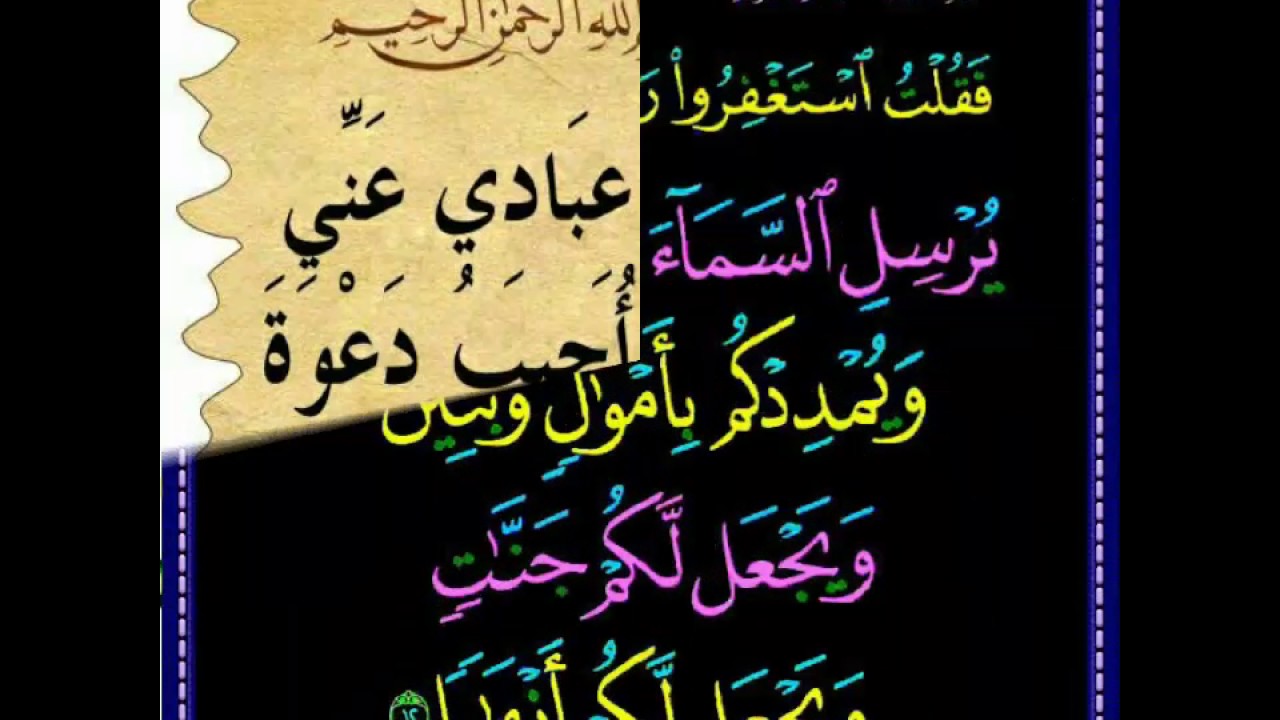 الله الرحمن الرحيم
عِبَادِي عَنِّي
أُجِيبُ دَعْوَةَ
فَقُلْتُ ٱسْتَغْفِرُوا۟ رَ
يُرْسِلِ ٱلسَّمَآءَ
وَيُمْدِدْكُم بِأَمْوَٰلٍ وَبَنِينَ
وَيَجْعَل لَّكُمْ جَنَّٰتٍ
وَيَجْعَل لَّكُمْ أَنْهَٰرًا ١٢